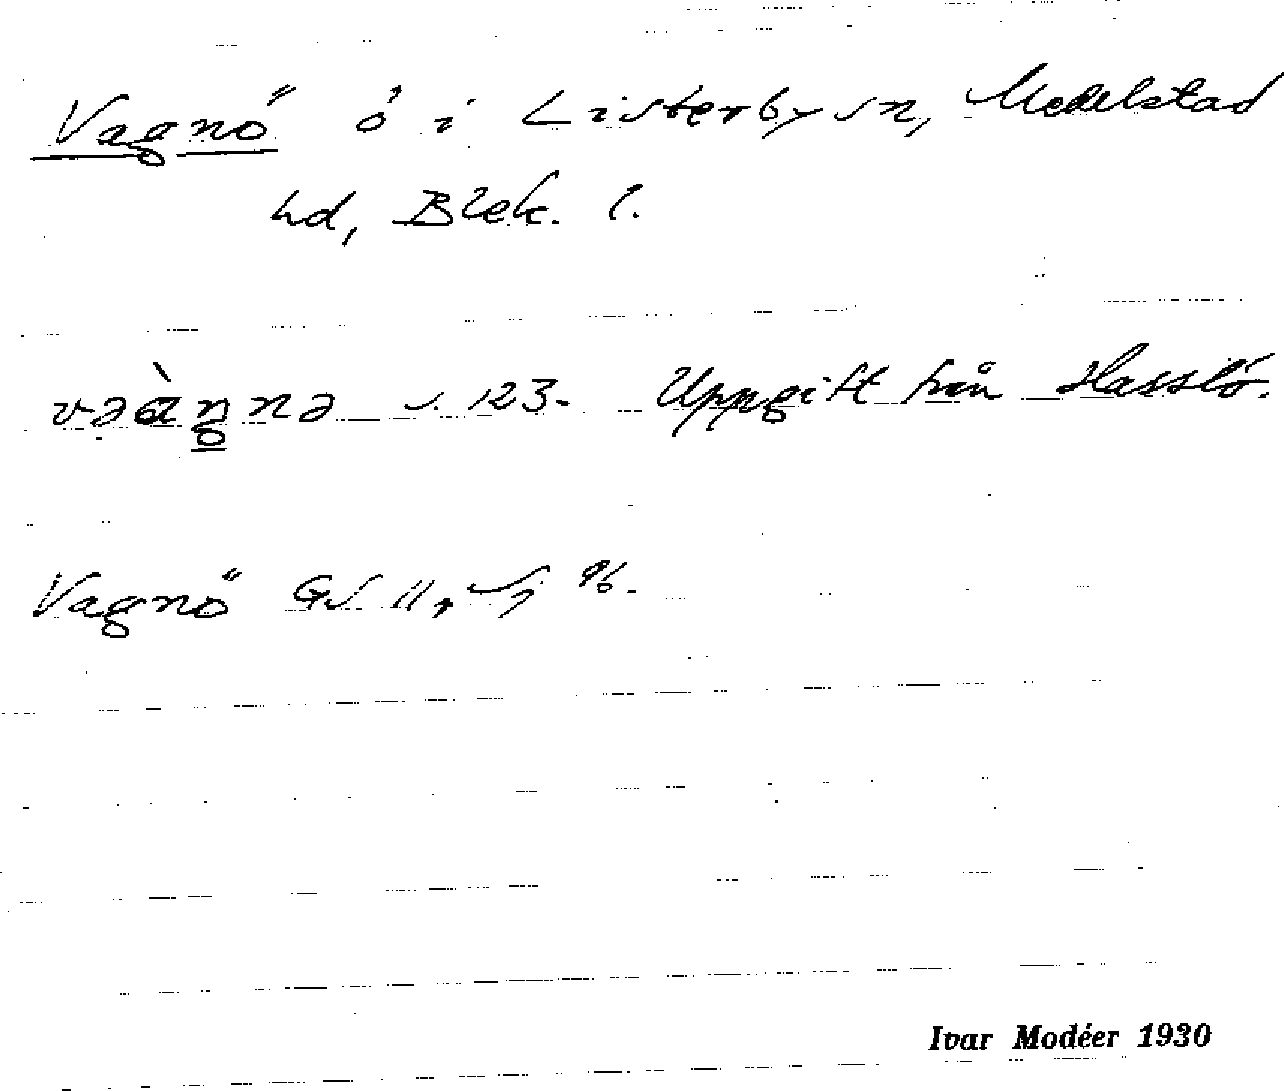 Vagnö ö i Listerby sn, Medelstad
hd, Blek. l.
vəàŋnə s. 123. Uppgift från Hasslö.
Vagnö GS 11, Sj 96.
Ivar Modéer 1930